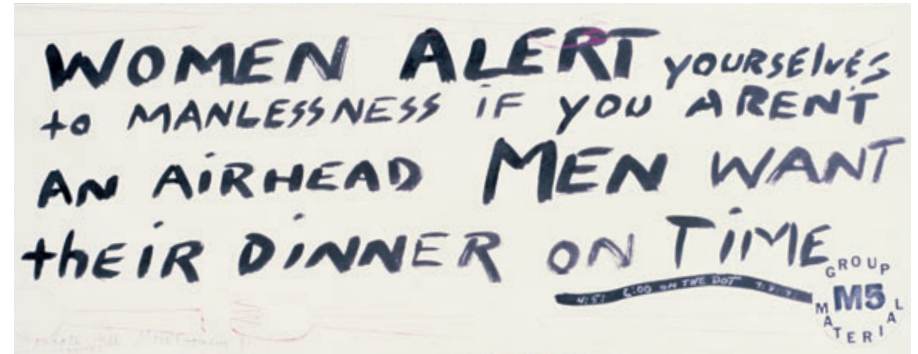 WOMEN ALERT YOURSELVES
to MANLESSNESS iF YOU ARENT
AN AiRHEAD MEN WANT
thEiR DiNNER ON TiME
6:00 ON THE DOT
GROUP
M5
MATERIAL